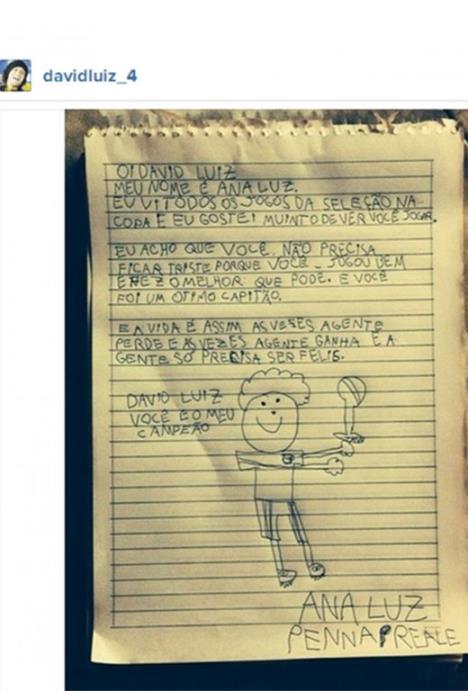 davidluiz_4
OI DAVID LUIZ
MEU NOME É ANA LUZ.
EU VI TODOS OS JOGOS DA SELEÇÃO NA
COPA E EU GOSTEI MUINTO DE VER VOCÊ JOGAR.
EU ACHO QUE VOCÊ NÃO PRECISA
FICAR TRISTE PORQUE VOCÊ JOGOU BEM
E FEZ O MELHOR QUE PODE. E VOCÊ
FOI UM OTIMO CAPITÃO.
E A VIDA É ASSIM AS VESES AGENTE
PERDE E AS VEZES AGENTE GANHA E A
GENTE SÓ PRECISA SER FELIS.
DAVID LUIZ
VOCÊ E O MEU
CAMPEÃO
ANA LUZ
PENNA REALE